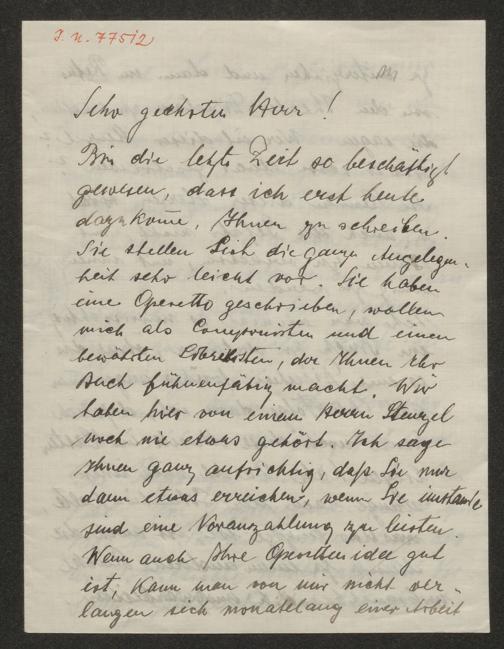 J. N. 77512
Sehr geehrter Herr!
Bin die letzte Zeit so beschäftigt
gewesen, dass ich erst heute
dazukom̅e, Ihnen zu schreiben.
Sie stellen Sich die ganze Angelegen-
heit sehr leicht vor. Sie haben
eine Operette geschrieben, wollen
mich als Componisten und einen
bewährten Librettisten, der Ihnen Ihr
Buch bühnenfähig macht. Wir
haben hier von einem Herrn Stenzel
noch nie etwas gehört. Ich sage
Ihnen ganz aufrichtig, daß Sie nur
dann etwas erreichen, wenn Sie imstande
sind eine Voranzahlung zu leisten.
Wenn auch Ihre Operettenidee gut
ist, kann man von mir nicht ver-
langen sich monatelang einer Arbeit